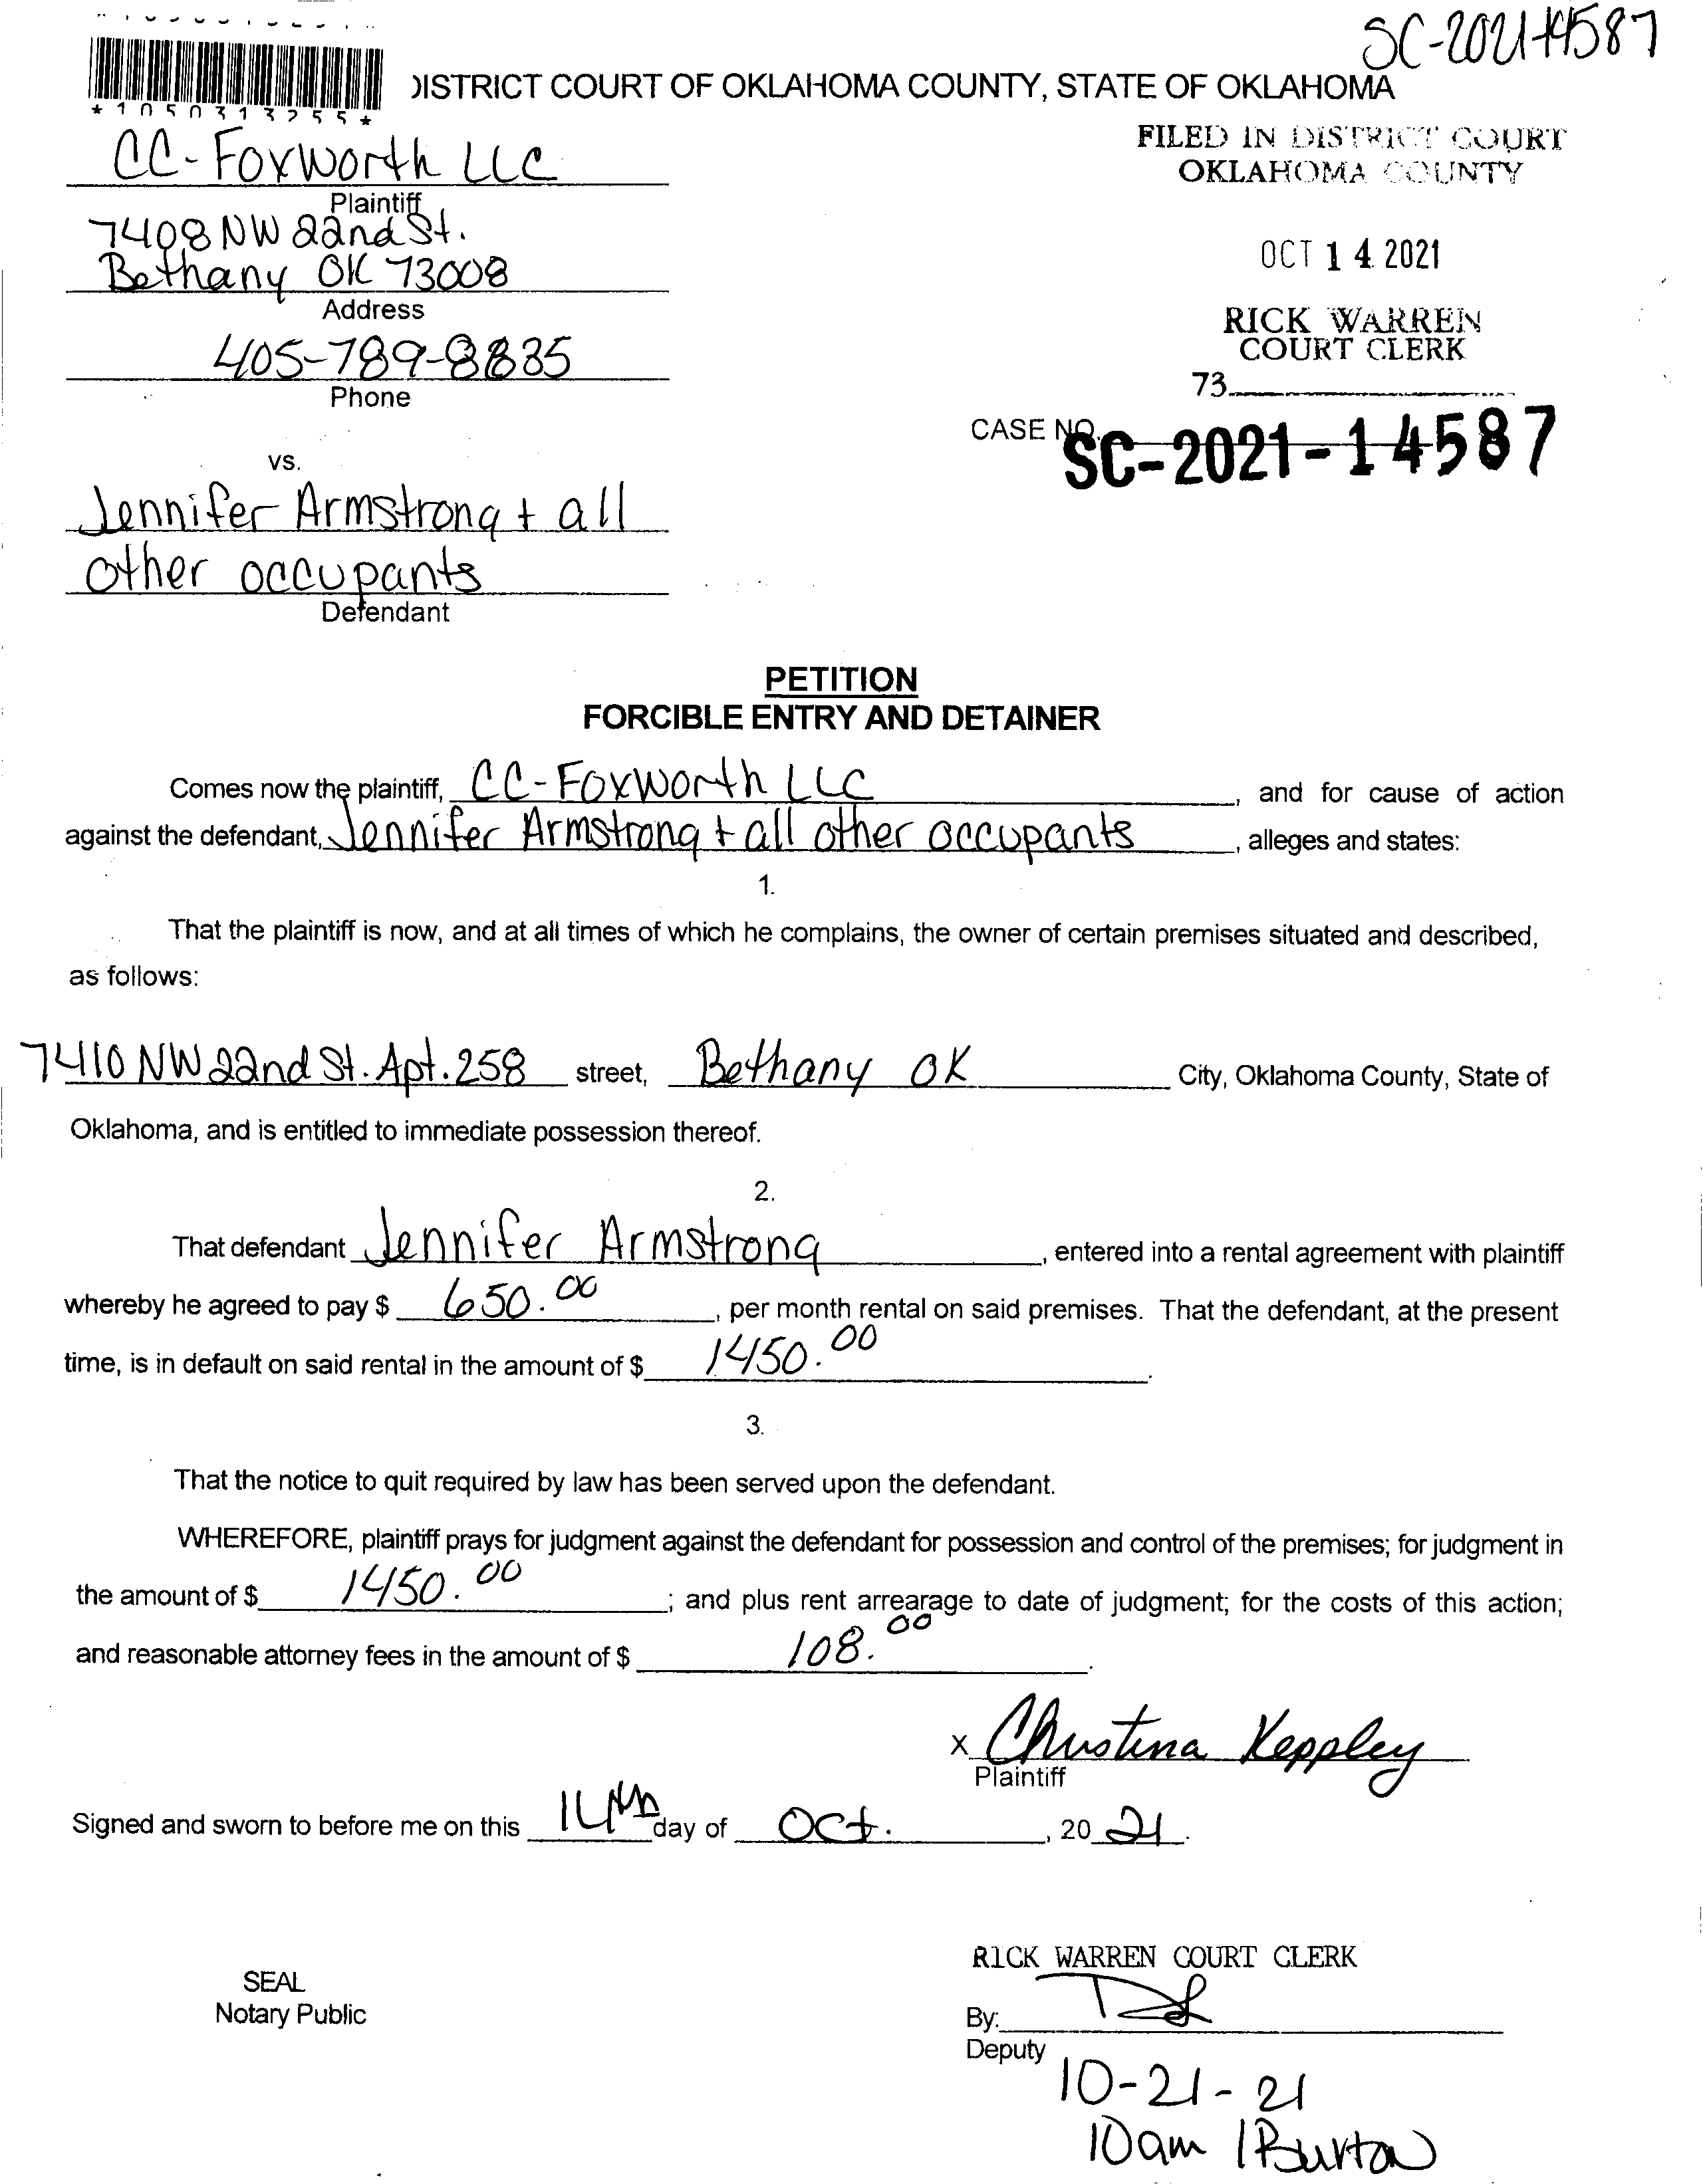 SC-2021-14587
*1050313255*
DISTRICT COURT OF OKLAHOMA COUNTY, STATE OF OKLAHOMA
FILED IN DISTRICT COURT
OKLAHOMA COUNTY
CC-Foxworth LLC
Plaintiff
7408 NW 22nd St.
Bethany OK 73008
Address
OCT 14 2021
405-789-8835
Phone
RICK WARREN
COURT CLERK
73
CASE NO. SC-2021-14587
vs.
Jennifer Armstrong + all
other occupants
Defendant
PETITION
FORCIBLE ENTRY AND DETAINER
Comes now the plaintiff, CC-Foxworth LLC, and for cause of action
against the defendant, Jennifer Armstrong + all other occupants, alleges and states:
1.
That the plaintiff is now, and at all times of which he complains, the owner of certain premises situated and described,
as follows:
7410 NW 22nd St. Apt. 258 street, Bethany OK City, Oklahoma County, State of
Oklahoma, and is entitled to immediate possession thereof.
2.
That defendant Jennifer Armstrong, entered into a rental agreement with plaintiff
whereby he agreed to pay $ 650.00, per month rental on said premises. That the defendant, at the present
time, is in default on said rental in the amount of $ 1450.00.
3.
That the notice to quit required by law has been served upon the defendant.
WHEREFORE, plaintiff prays for judgment against the defendant for possession and control of the premises; for judgment in
the amount of $ 1450.00; and plus rent arrearage to date of judgment; for the costs of this action;
and reasonable attorney fees in the amount of $ 108.00.
x Christina Keppley
Plaintiff
Signed and sworn to before me on this 14th day of Oct., 20 21.
RICK WARREN COURT CLERK
SEAL
Notary Public
By:
Deputy
10-21-21
10am / Burton